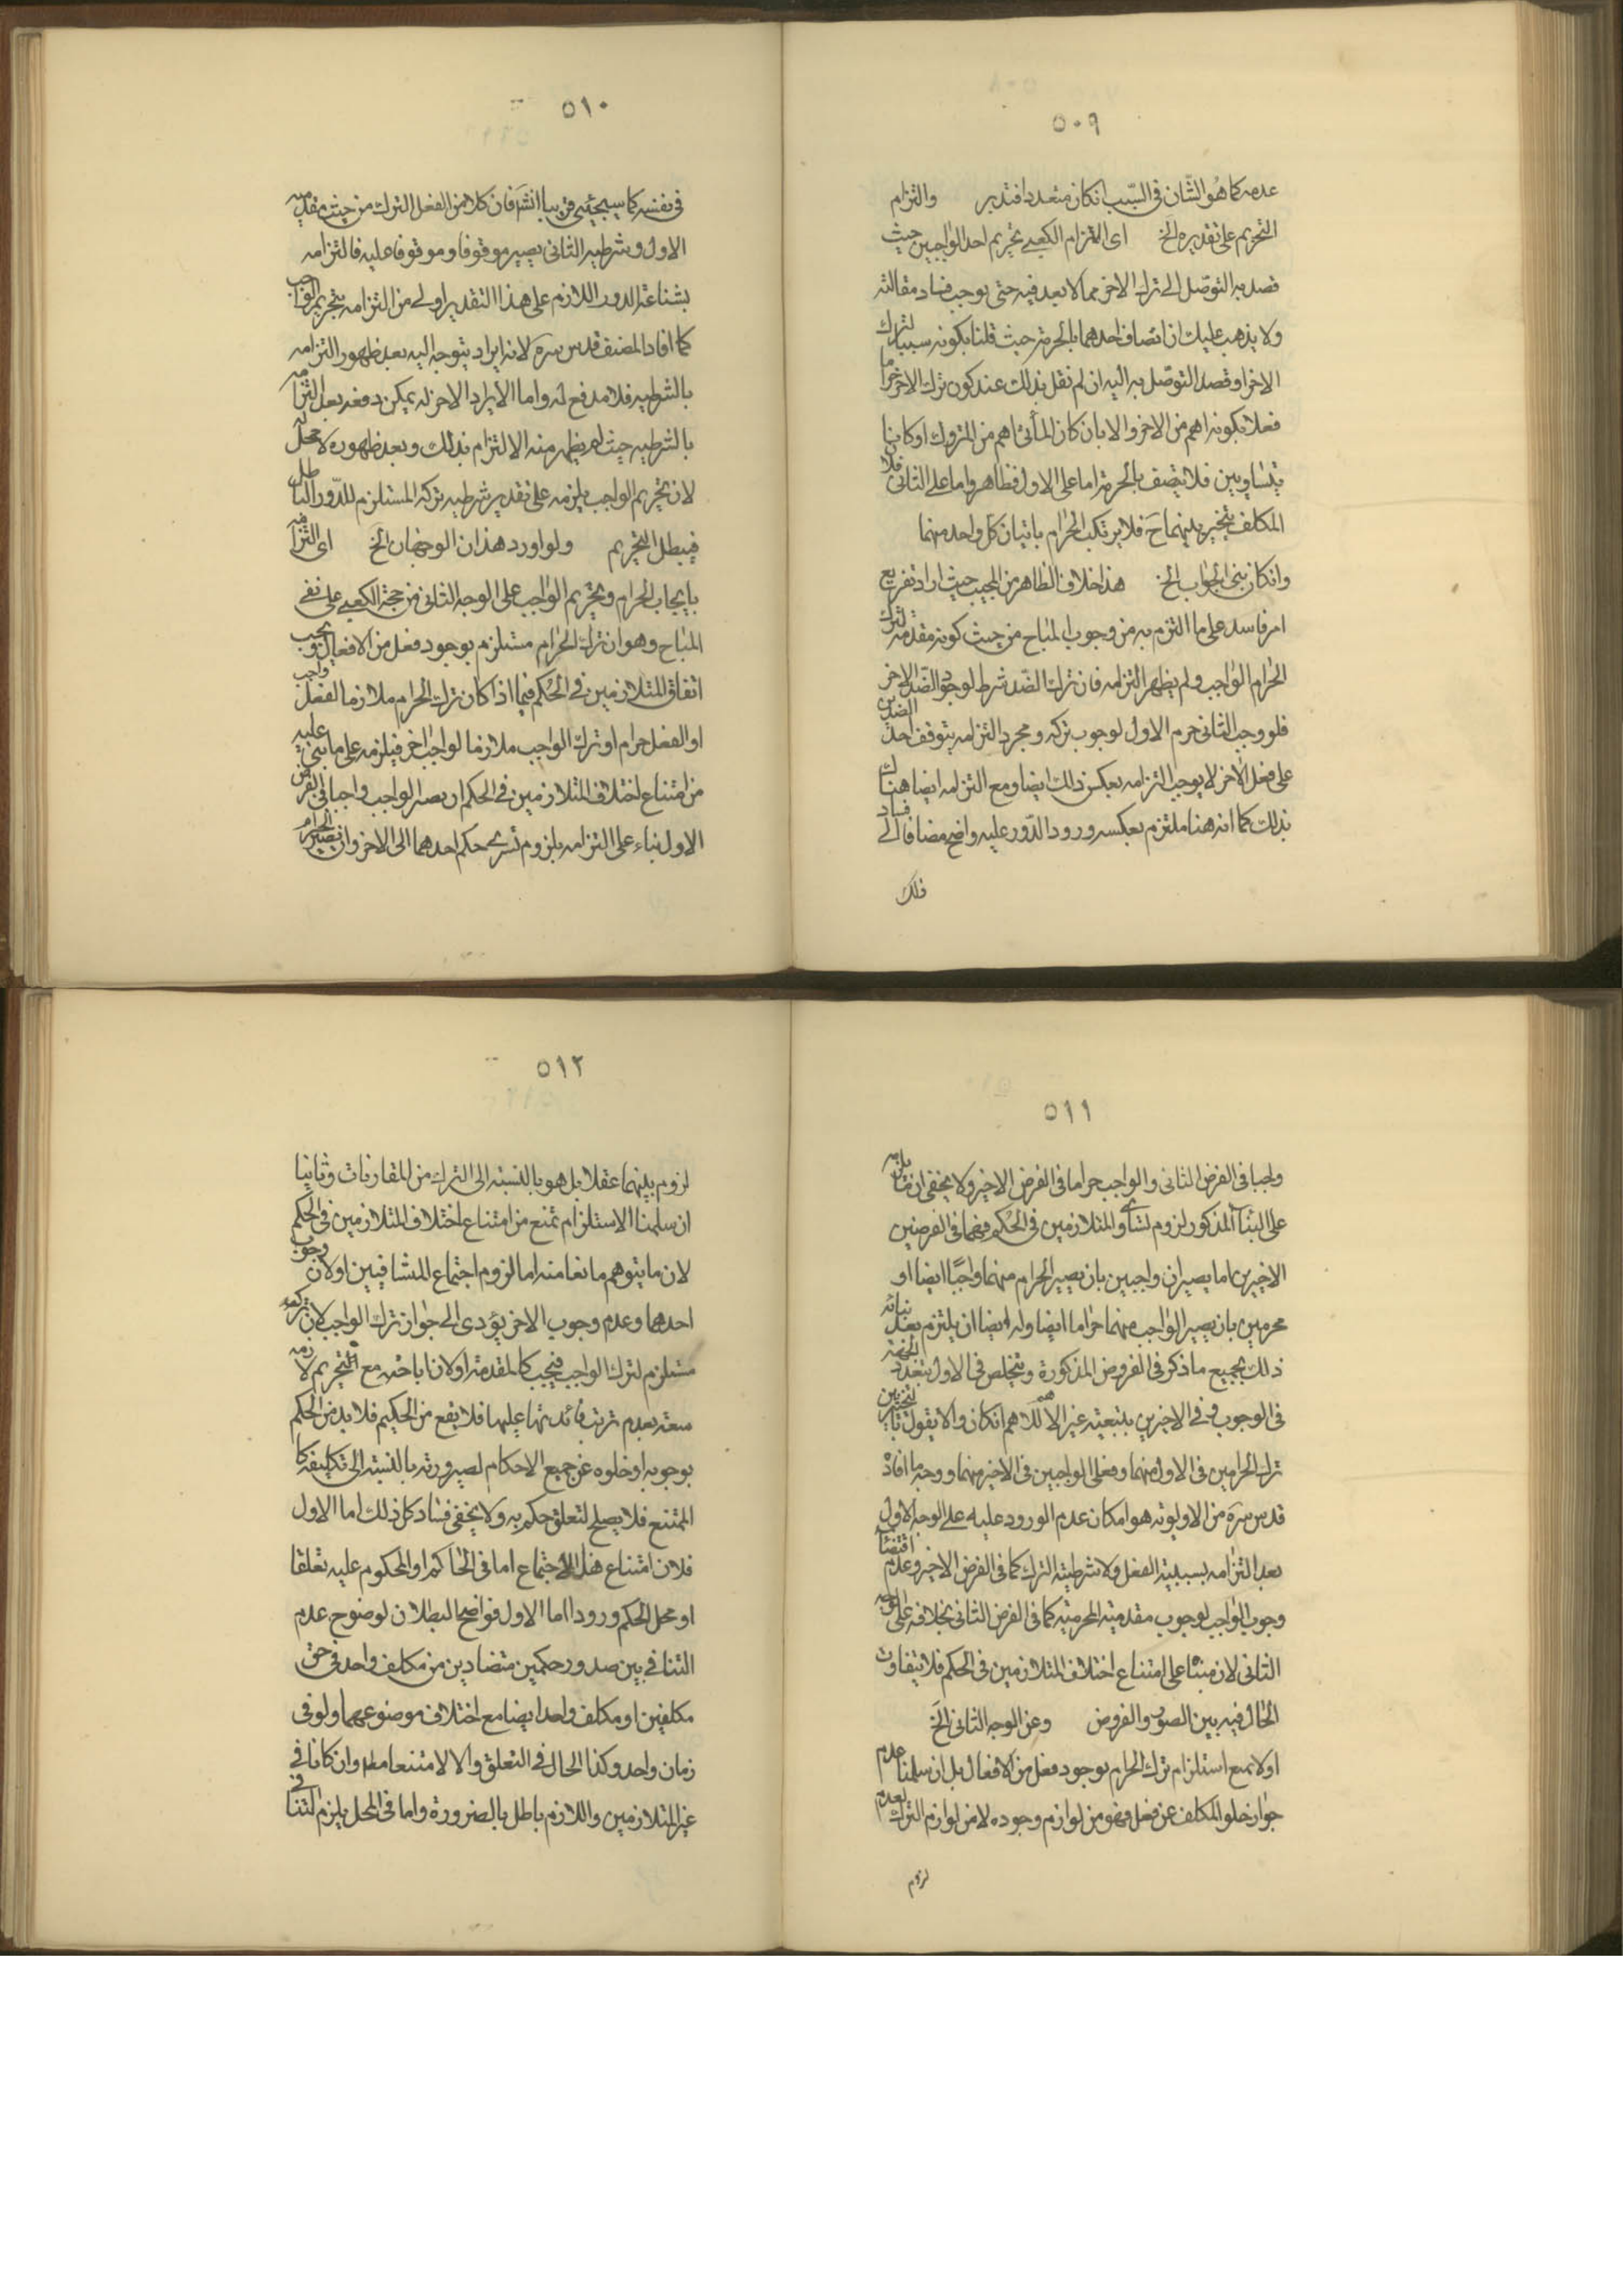 ٥٠٩
عدمه كما هو الشّان فى السّبب ان كان متعددا فتدبر والتزام
التحريم على تقديره الخ اى التزام الكعبى تحريم احد الواجبين حيث
قصد به التوصّل الى ترك الاخر مما لا بعد فيه حتى يوجب فساد مقالته
ولا يذهب عليك ان اتصاف احدهما بالحرمة حيث قلنا بكونه سببا لترك
الاخر او قصد التوصّل به اليه ان لم نقل بذلك عند كون ترك الاخر حراما
فعلا بكونه اهم من الاخر والا بان كان المأتى اهم من المتروك او كانا
متساويين فلا يتصف بالحرمة اما على الاول فظاهر واما على الثانى فلان
المكلف يتخير بينهما ح فلا يرتكب الحرام باتيان كل واحد منهما
وان كان بنى الجواب الخ هذا خلاف الظاهر من المجيب حيث اراد تفريع
امر فاسد على ما التزم به من وجوب المباح من حيث كونه مقدمة لترك
الحرام الواجب ولم يظهر التزامه فان ترك الضّد شرط لوجود الضّد الاخر
فلو وجب الثانى حرم الاول لوجوب تركه ومجرد التزامه بتوقف احد الضدين
على فعل الاخر لا يوجب التزامه بعكس ذلك ايضا ومع التزامه ايضا هناك
بذلك كما انه هنا ملتزم بعكسه ورود الدّور عليه واضح مضافا الى فساد
ذلك
٥١٠
فى نفسه كما سيجيئ قريبا انشَ فان كلا من الفعل الترك من حيث مقدميه
الاول وشرطيه الثانى يصير موقوفا وموقوفا عليه فالتزامه
بشناعة الدور اللازم على هذا التقدير اولى من التزامه بتحريم الواجب
كما افاد المصنف قدس سره لانه ايراد يتوجه اليه بعد ظهور التزامه
بالشرطيه فلا مدفع له واما الايراد الاخر له يمكن دفعه بعدم التزامه
بالشرطيه حيث لم يظهر منه الا التزام بذلك وبعد ظهوره لا محل له
لان تحريم الواجب يلزمه على تقدير شرطيه تركه المستلزم للدّور الباطل
فيبطل التحريم ولو اورد هذان الوجهان الخ اى التزامه
بايجاب الحرام وتحريم الواجب على الوجه الثانى من حجة الكعبى على نفى
المباح وهو ان ترك الحرام مستلزم بوجود فعل من الافعال ويجب
اتفاق المتلازمين فى الحكم فيما اذا كان ترك الحرام ملازما لفعل واجب
او الفعل حرام او ترك الواجب ملازما لواجب اخر فيلزمه على ما بنى عليه
من امتناع اختلاف المتلازمين فى الحكم ان يصير الواجب واجبا فى الفرض
الاول بناء على التزامه بلزوم تسرى حكم احدهما الى الاخر وان يصير الحرام
٥١١
واجبا فى الفرض الثانى والواجب حراما فى الفرض الاخير ولا يخفى ان ما يلزمه
على البناء المذكور لزوم تساوى المتلازمين فى الحكم فهما فى الفرضين
الاخيرين اما يصيران واجبين بان يصير الحرام منهما واجبًا ايضا او
محرمين بان يصير الواجب منهما حراما ايضا وله ايضا ان يلتزم بعد بنائه
ذلك بجميع ما ذكر فى الفروض المذكورة ويتخلص فى الاول بتعدد الجهة
فى الوجوب وفى الاخيرين بتبعيته غير الاهم للاهم ان كان والا يقول بالتخيير بين
ترك الحرامين فى الاول منهما وفعلى الواجبين فى الاخير منهما ووجه ما افاد
قدس سره من الاولوية هو امكان عدم الورود عليه على الوجه الاول
بعد التزامه بسببية الفعل ولا شرطية الترك كما فى الفرض الاخير وعدم اقتضاء
وجوب الواجب لوجوب مقدميه المحرمية كما فى الفرض الثانى بخلافه على الوجه
الثانى لان مبناه على امتناع اختلاف المتلازمين فى الحكم فلا يتفاوت
الحال فيه بين الصور والفروض وعن الوجه الثانى الخ
اولا بمنع استلزام ترك الحرام بوجود فعل من الافعال بل ان سلمنا عدم
جواز خلو المكلف عن فعل فهو من لوازم وجوده لا من لوازم الترك لعدم
لزوم
٥١٢
لزوم بينهما عقلا بل هو بالنسبة الى الترك من المقارنات وثانيا
ان سلمنا الاستلزام نمنع من امتناع اختلاف المتلازمين فى الحكم
لان ما يتوهم مانعا منه اما لزوم اجتماع المتنافيين او لان وجوب
احدهما وعدم وجوب الاخر يؤدى الى جواز ترك الواجب لان تركه
مستلزم لترك الواجب فيجب كالمقدمة او لان اباحته مع التحريم لازمه
سفه بعدم ترتب فائدتها عليها فلا يقع من الحكيم فلا بد من الحكم
بوجوبه او خلوه عن جميع الاحكام لصيرورته بالنسبة الى تكليفه كا
الممتنع فلا يصلح لتعلق حكم به ولا يخفى فساد كل ذلك اما الاول
فلان امتناع هذا الاجتماع اما فى الحاكم او المحكوم عليه تعلقا
او محل الحكم ورودا اما الاول فواضح البطلان لوضوح عدم
التنافى بين صدور حكمين متضادين من مكلف واحد فى حق
مكلفين او مكلف واحد ايضا مع اختلاف موضوعهما ولو فى
زمان واحد وكذا الحال فى التعلق والا لامتنعا مط وان كانا فى
غير المتلازمين واللازم باطل بالضرورة واما فى المحل يلزم التنافى